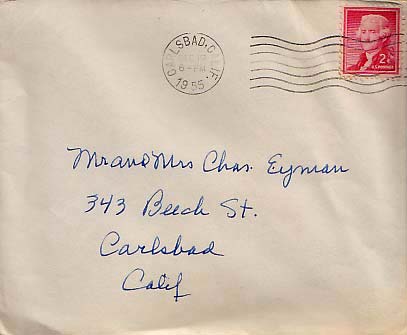 CARLSBAD, CALIF.
6-PM
1955
2¢
U.S. POSTAGE
Mr and Mrs Chas. Eyman
343 Beech St.
Carlsbad
Calif